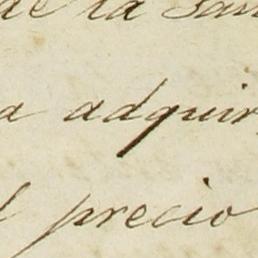 de la San
a adquir
l precio